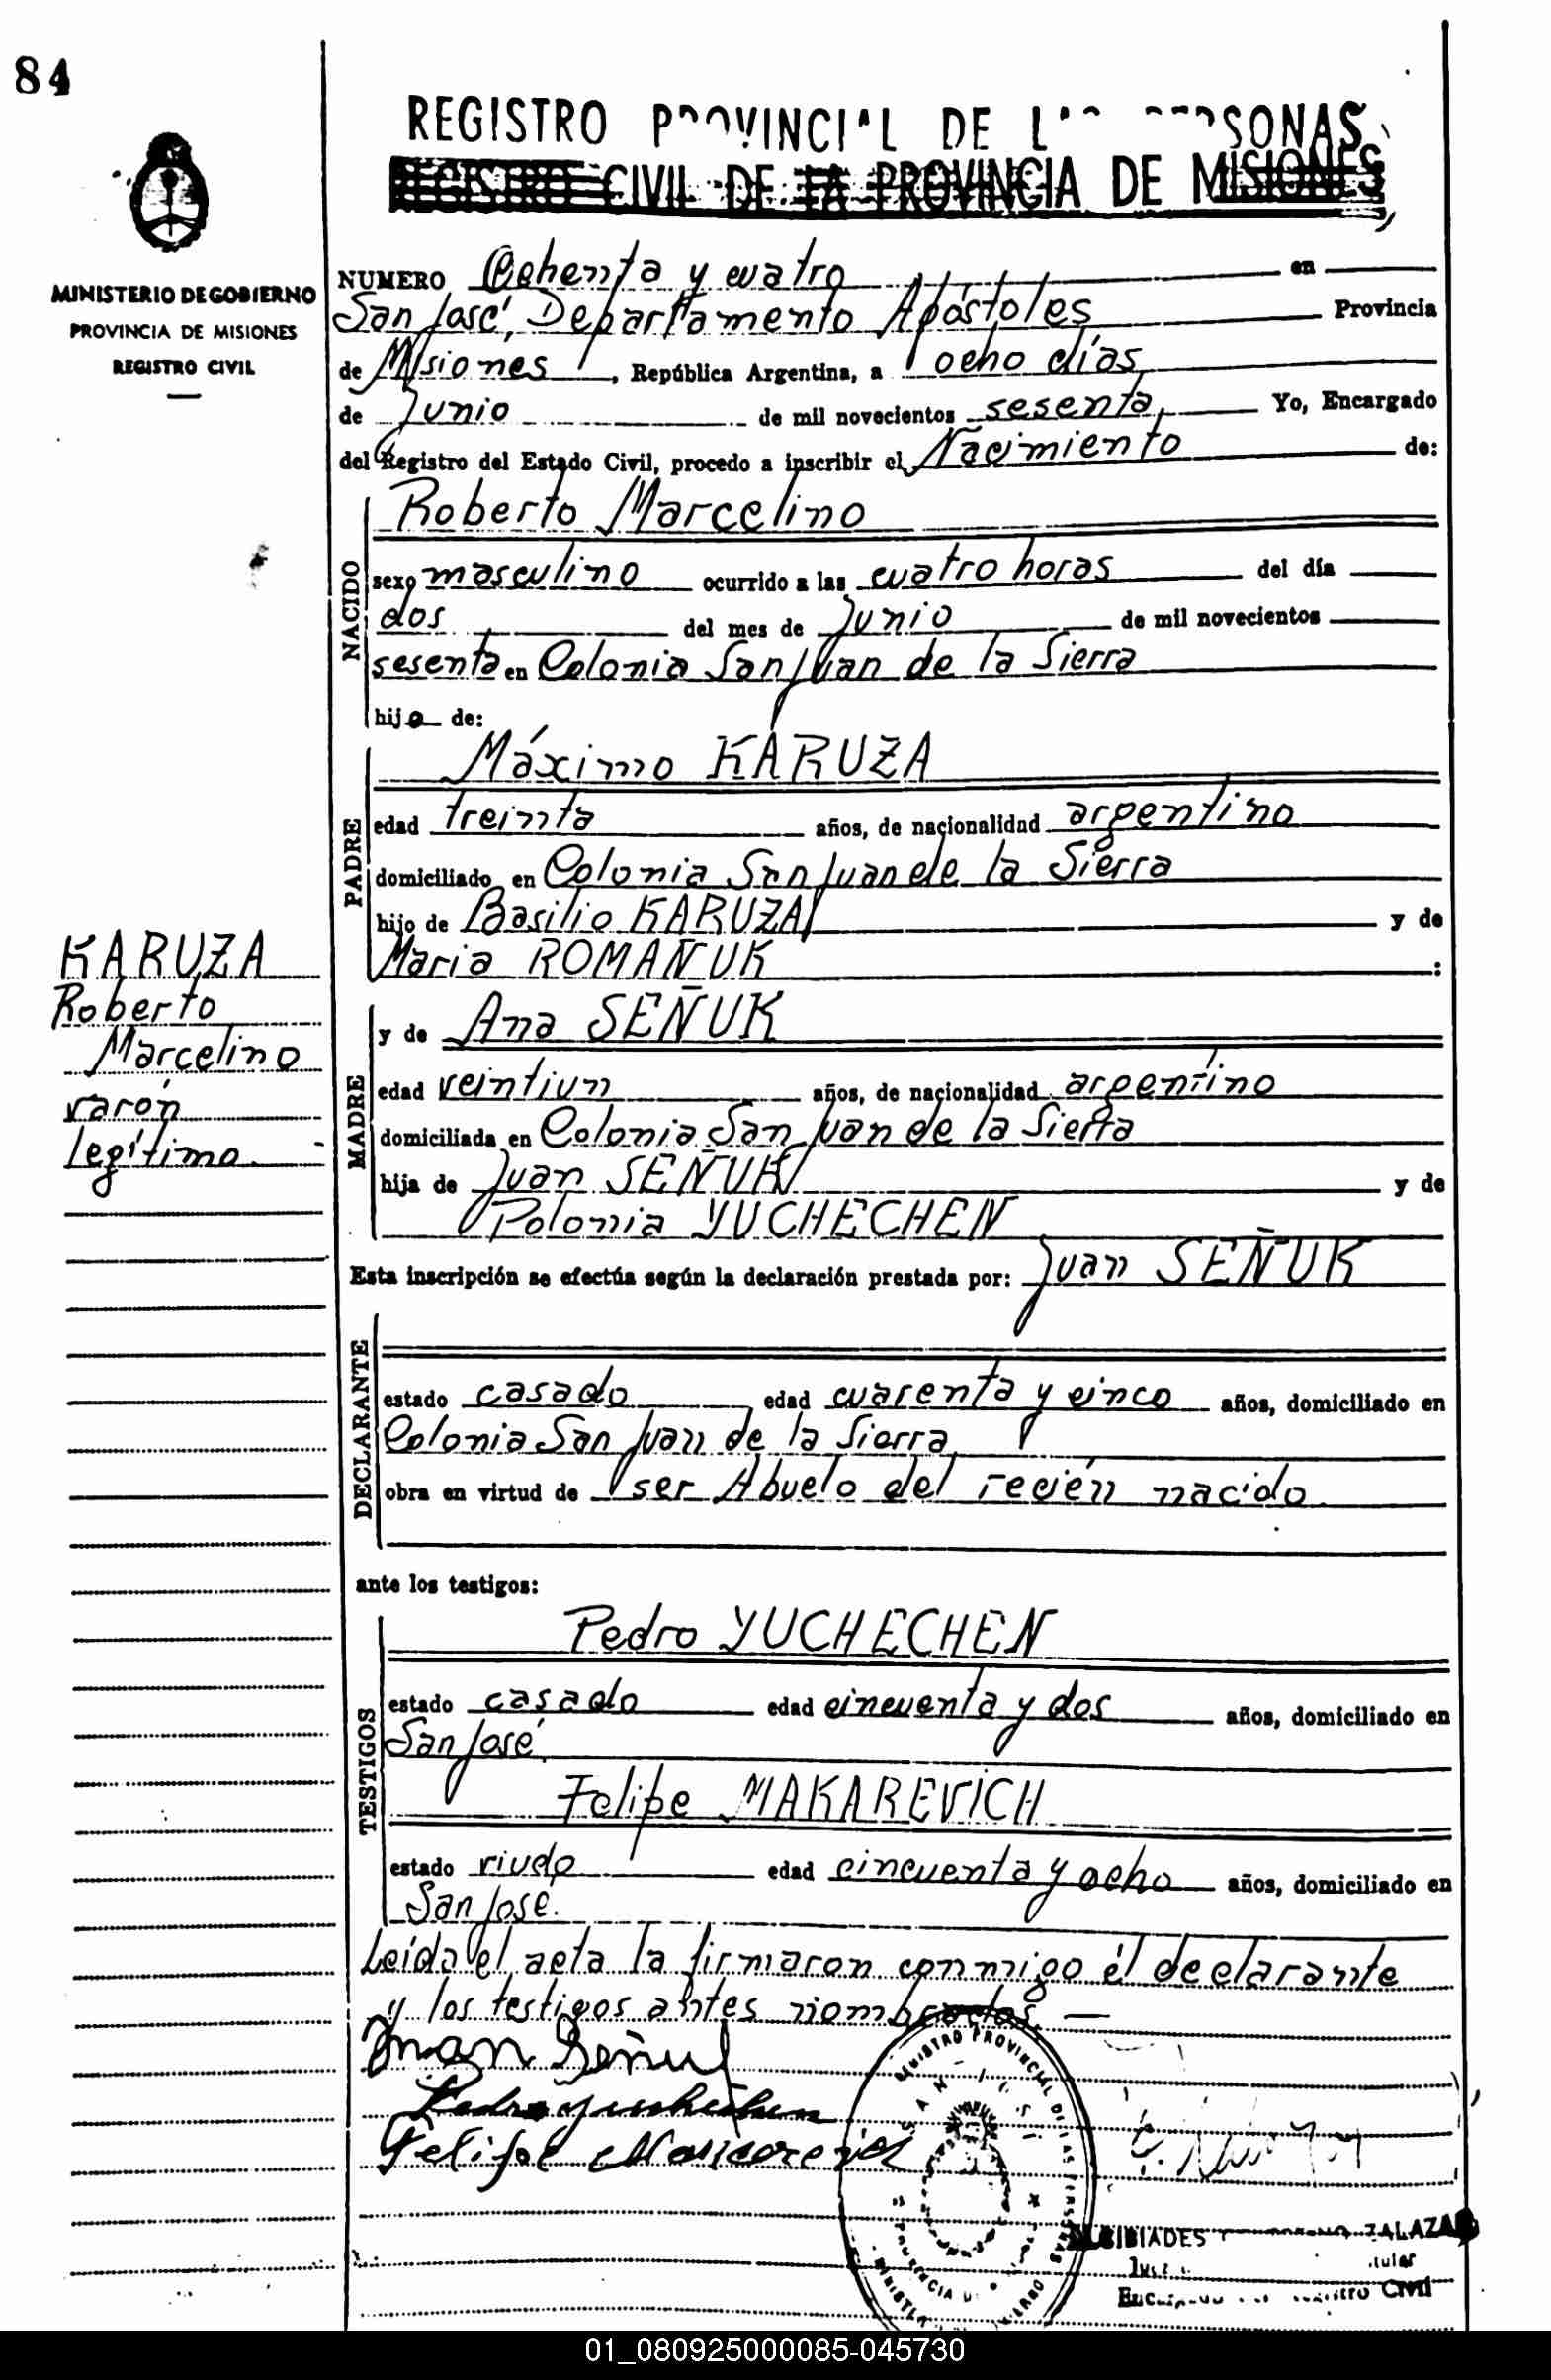 84
REGISTRO PROVINCIAL DE LAS PERSONAS
REGISTRO CIVIL DE LA PROVINCIA DE MISIONES
MINISTERIO DE GOBIERNO
PROVINCIA DE MISIONES
REGISTRO CIVIL
NUMERO Ochenta y cuatro en
San José, Departamento Apóstoles Provincia
de Misiones, República Argentina, a ocho días
de Junio de mil novecientos sesenta, Yo, Encargado
del Registro del Estado Civil, procedo a inscribir el Nacimiento de:
NACIDO
Roberto Marcelino
sexo masculino ocurrido a las cuatro horas del día
dos del mes de Junio de mil novecientos
sesenta en Colonia San Juan de la Sierra
hijo de:
PADRE
Máximo KARUZA
edad treinta años, de nacionalidad argentino
domiciliado en Colonia San Juan de la Sierra
hijo de Basilio KARUZA y de
Maria ROMAÑUK :
KARUZA
Roberto
Marcelino
varón
legítimo.
MADRE
y de Ana SEÑUK
edad veintiun años, de nacionalidad argentino
domiciliada en Colonia San Juan de la Sierra
hija de Juan SEÑUK y de
Polonia YUCHECHEN
Esta inscripción se efectúa según la declaración prestada por: Juan SEÑUK
DECLARANTE
estado casado edad cuarenta y cinco años, domiciliado en
Colonia San Juan de la Sierra
obra en virtud de ser Abuelo del recién nacido.
ante los testigos:
TESTIGOS
Pedro YUCHECHEN
estado casado edad cincuenta y dos años, domiciliado en
San José.
Felipe MAKAREVICH
estado viudo edad cincuenta y ocho años, domiciliado en
San José.
Leída el acta la firmaron conmigo él declarante
y los testigos antes nombrados. —
Juan Señuk
Pedro Yuchechen
Felipe Makarevich
REGISTRO PROVINCIAL DE LAS PERSONAS
SAN JOSE
ALCIBIADES ZALAZAR
Titular
Encargado del Registro Civil
01_080925000085-045730